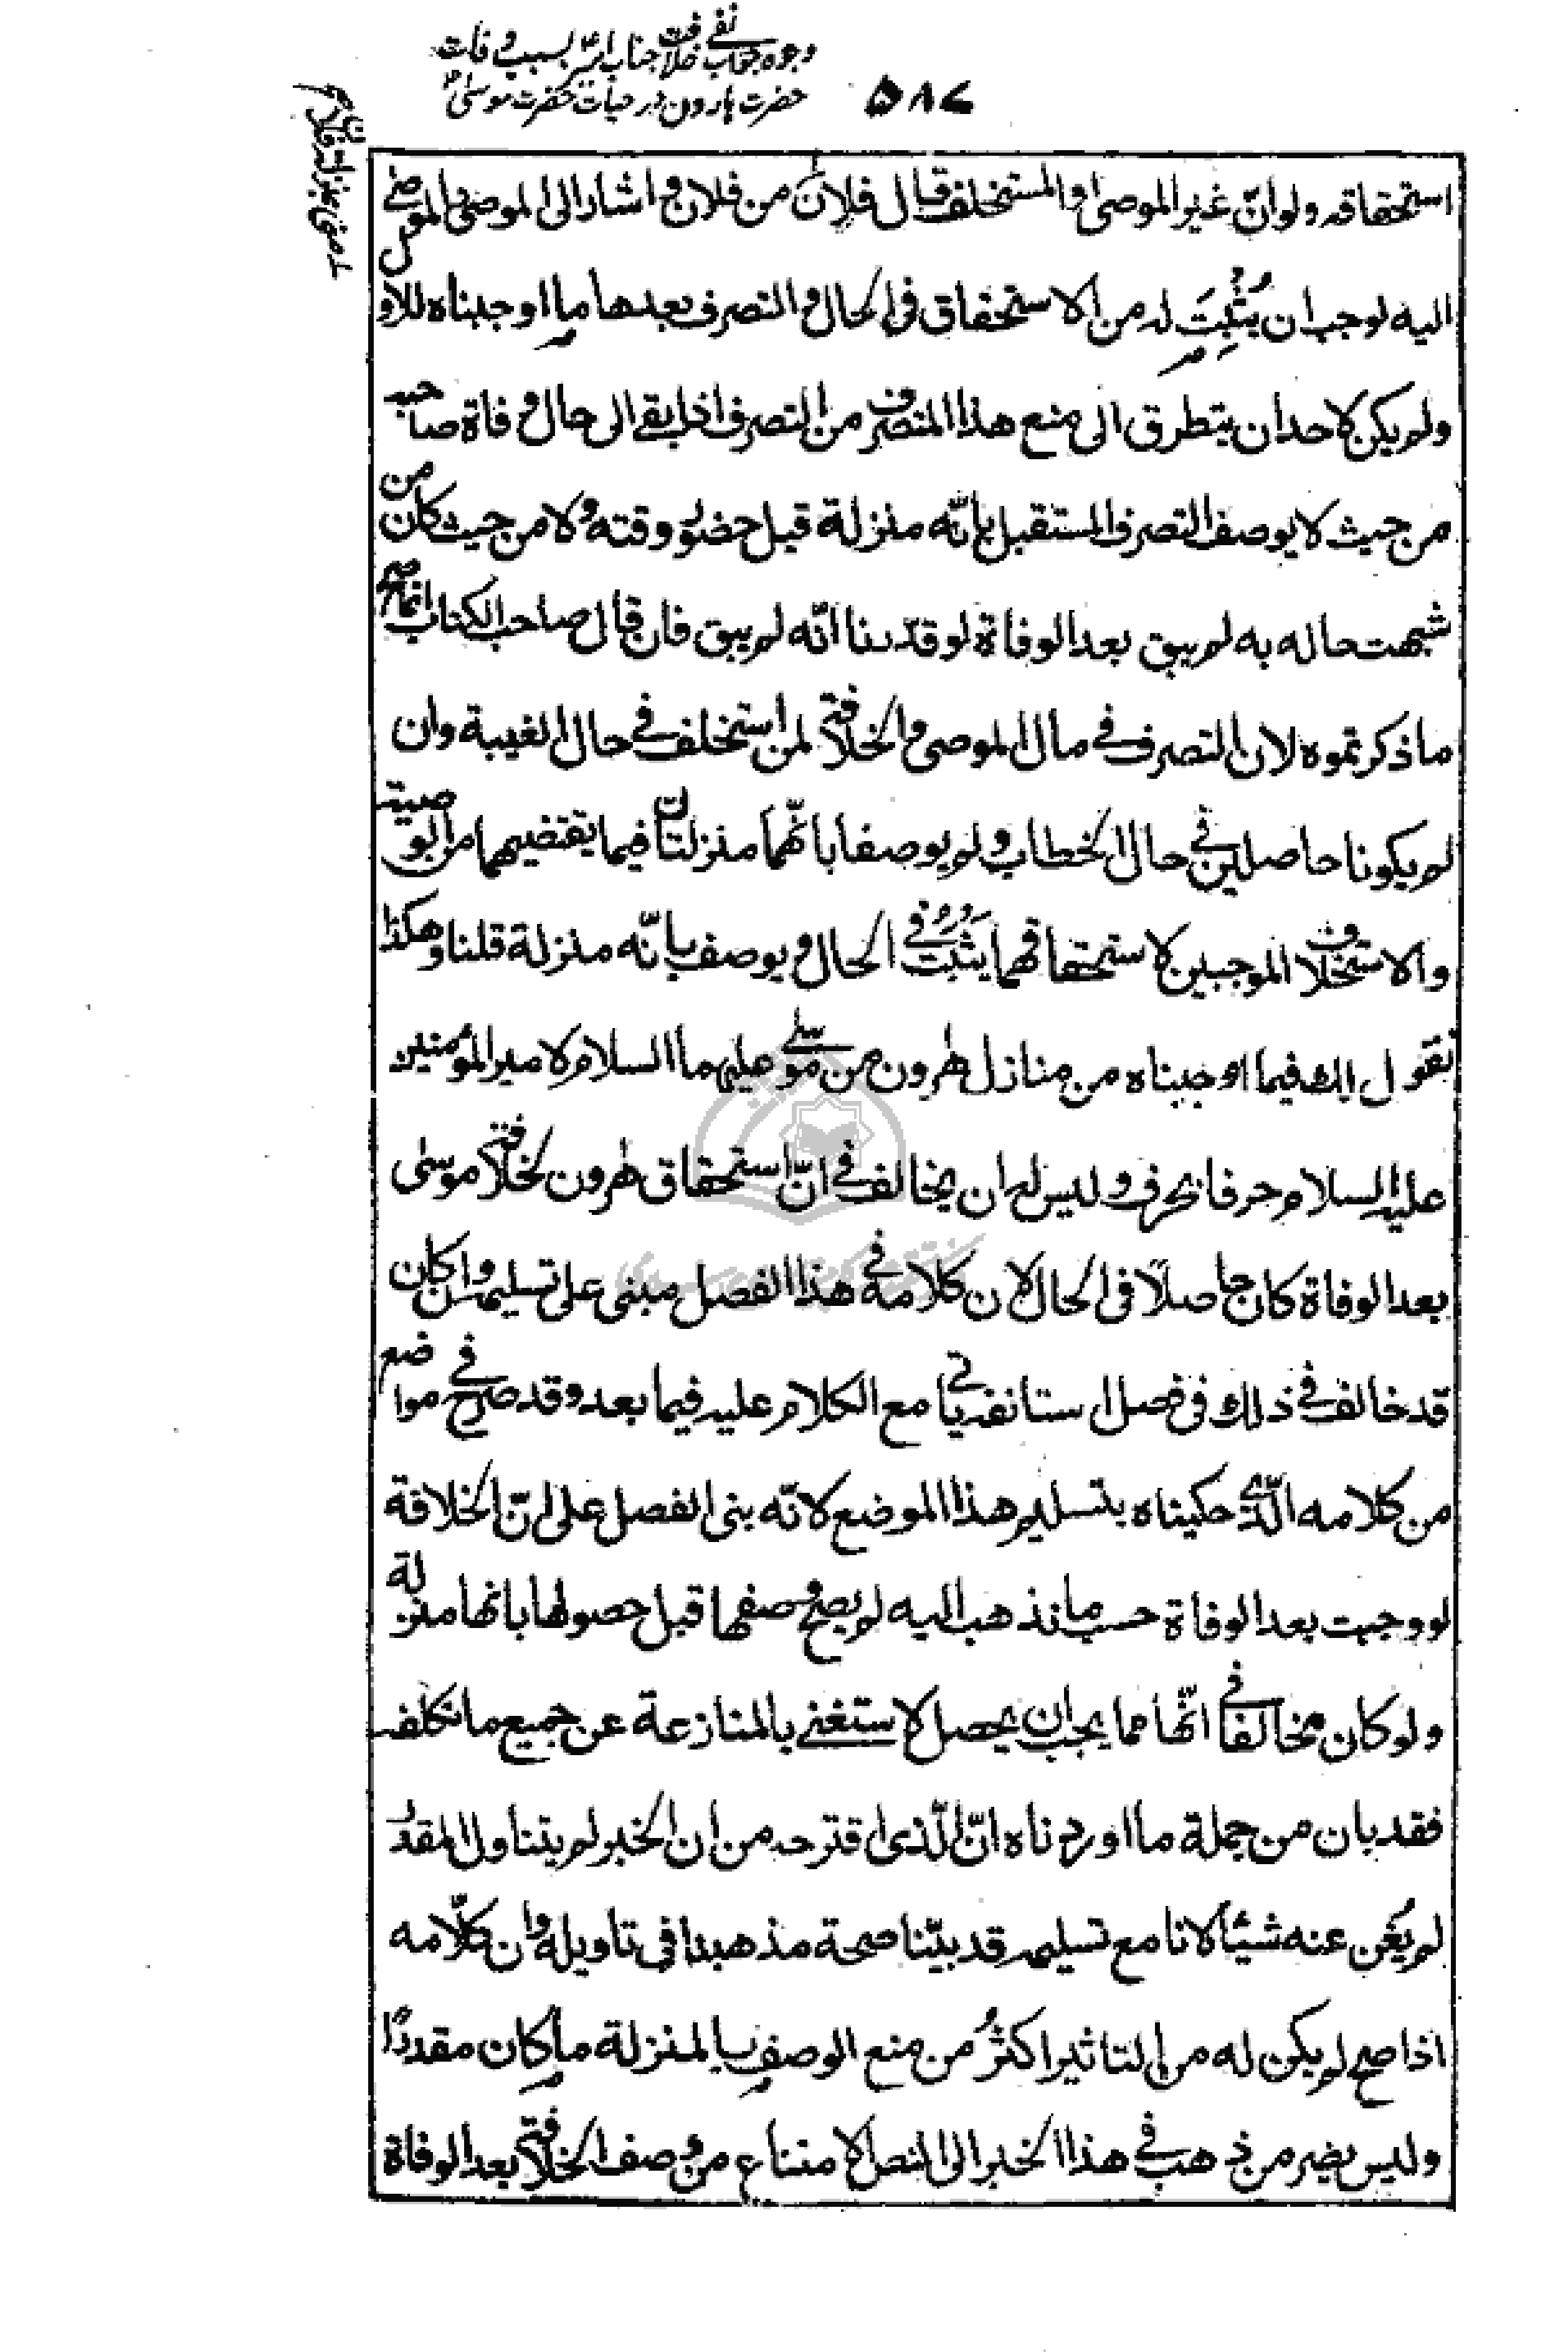 وجوه جواب نفی خلافت جناب امیرؑ بسبب وفات
حضرت هارون در حیات حضرت موسیٰؑ
۵۸۷
استحقاقه ولو انّ غير الموصى والمستخلف قال فلان من فلان واشار الى الموصى والموصى
اليه لوجب ان يُثبِتَ له من الاستحقاق فى الحال والتصرف بعدها ما اوجبناه للاول
ولم يكن لاحد ان يتطرق الى منع هذا المتصرف من التصرف اذا بقى الى حال وفاة صاحبه
من حيث لا يوصف التصرف المستقبل بانّه منزلة قبل حضور وقته ولا من حيث كان من
شبهت حاله به لم يبق بعد الوفاة لو قدّرنا انّه لم يبق فان قال صاحب الكتاب انما صح
ما ذكرتموه لان التصرف فى مال الموصى والخلافة لمن استخلف فى حال الغيبة وان
لم يكونا حاصلين فى حال الخطاب ولم يوصفا بانّهما منزلتان فيما يقتضيهما من الوصية
والاستخلاف الموجبين لاستحقاقهما يثبت فى الحال ويوصف بانّه منزلة قلنا وهكذا
نقول لك فيما اوجبناه من منازل هٰرون من موسى عليهما السلام لامير المؤمنين
عليه السلام حرفا بحرف وليس له ان يخالف فى انّ استحقاق هٰرون لخلافة موسى
بعد الوفاة كان حاصلًا فى الحال لان كلامه فى هذا الفصل مبنى على تسليمه وان كان
قد خالف فى ذلك فى فصل استانفه ياتى مع الكلام عليه فيما بعد وقد صرح فى مواضع
من كلامه الّذى حكيناه بتسليم هذا الموضع لانّه بنى الفصل على انّ الخلافة
لو وجبت بعد الوفاة حسب ما نذهب اليه لم يصح وصفها قبل حصولها بانها منزلة
ولو كان مخالفا فى انّها مما يجب ان يحصل لاستغنى بالمنازعة عن جميع ما تكلفه
فقد بان من جملة ما اوردناه انّ الّذى اقترحه من ان الخبر لم يتناول المقدر
لم يُغن عنه شيئا لانا مع تسليمه قد بيّنا صحة مذهبنا فى تاويله وان كلامه
اذا صح لم يكن له من التاثير اكثرُ من منع الوصف بالمنزلة ما كان مقدرًا
وليس يضير من ذهب فى هذا الخبر الى النص الامتناع من وصف الخلافة بعد الوفاة